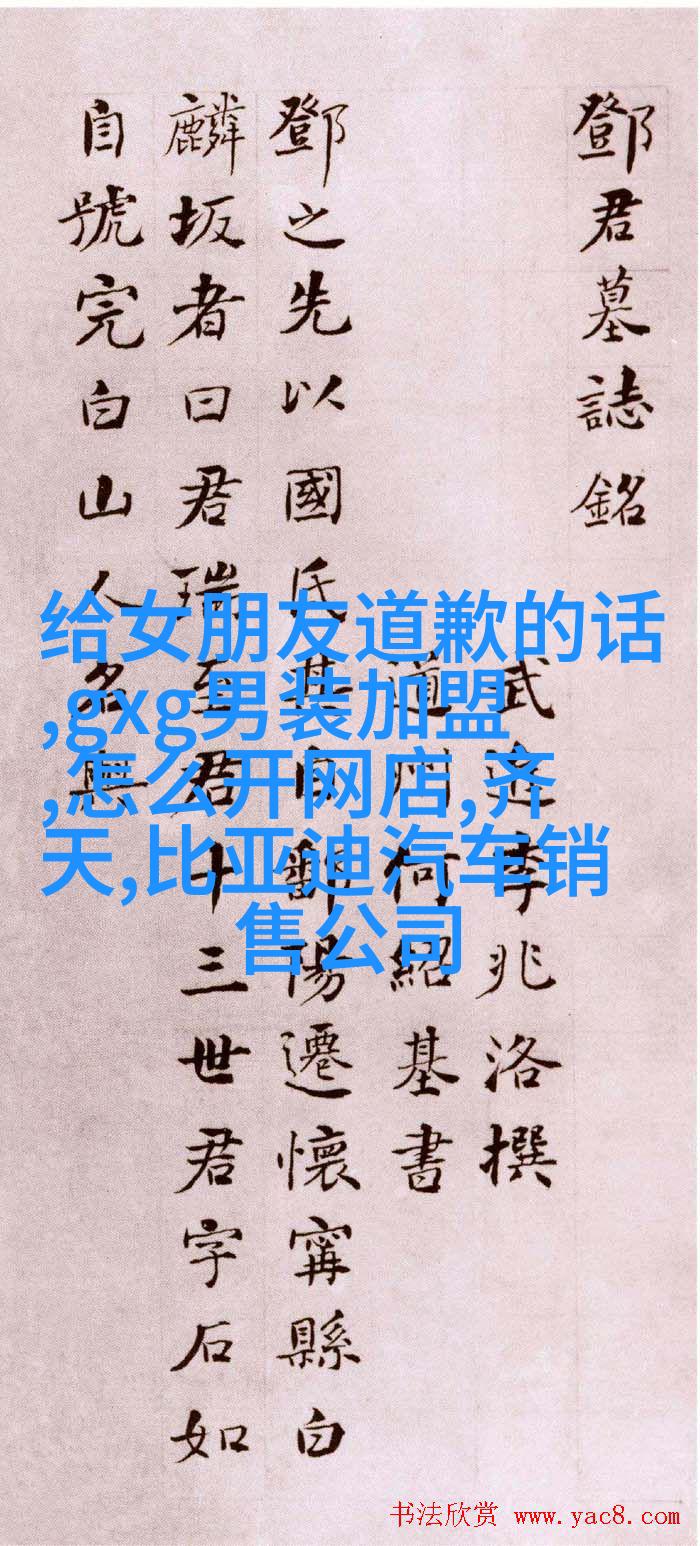 鄧君墓誌銘
武進李兆洛撰
道州何紹基書
鄧之先以國氏其自鄱陽遷懷寗縣白
麟坂者曰君瑞至君十三世君字石如
自號完白山人名與
给女朋友道歉的话
,gxg男装加盟
,怎么开网店,齐
天,比亚迪汽车销
售公司
书法欣赏 www.yac8.com